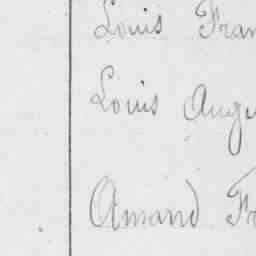 Louis Fran
Louis Augu
Amand Fr